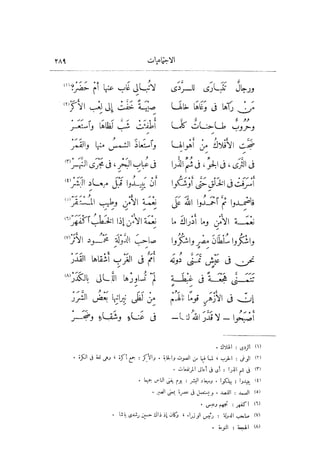 الاجتماعيات ٢٨٩
ورجالٌ تتبارى للردى لا تُبالى غاب عنها أم حَضَر؟ (١)
مَن رآها فى وَغاها خالها صِبْيَةً خفّت إلى لِعْب الأُكَر (٢)
وحُروبٌ طاحناتٌ كلّما أُطفِئت شبّ لَظاها واستعَر
ضجّت الأفلاكُ من أهوالها واستعاذ الشمسُ منها والقمر
فى الثرى، فى الجوّ، فى شُمّ الذُّرا فى عُباب البحر، فى مجرى النهر (٣)
أسرفت فى الخلق حتى أوشكوا أن يَبيدوا قبل ميعاد البشر (٤)
فاحمدوا ثم احمدوا الله على نِعمة الأمنِ وطيب المستقَر
نعمـة الأمنِ وما أدراك ما نِعمةُ الأمنِ إذا الخطبُ اكفهر (٦)
واشكروا سلطانَ مصرٍ واشكروا صاحبَ الدولة محمودَ الأثر (٧)
نحن فى عيشٍ تمنّى دونَه أُممٌ فى الغرب أشقاها القَدَر
تتمنّى هَجْعةً فى غِبطةٍ لم تُساورها الليالى بالكَدَر (٨)
إنّ فى الأزهر قومًا نالهم من لَظى نيرانها بعضُ الشرر
أصبحوا — لا قدّر الله لنا — فى عَناءٍ وشقاءٍ وضَجر
(١) الردى : الهلاك .
(٢) الوغى : الحرب ، لما فيها من الصوت والجلبة . والأكر : جمع أكرة ، وهى لغة فى الكرة .
(٣) شم الذرا : أى فى أعالى المرتفعات .
(٤) يبيدوا : يهلكوا . وميعاد البشر : يوم يفنى الناس جميعا .
(٦) اكفهر : تجهم وعبس .
(٧) صاحب الدولة : رئيس الوزراء ، وكان إذ ذاك حسين رشدى باشا .
(٨) الهجعة : النومة .